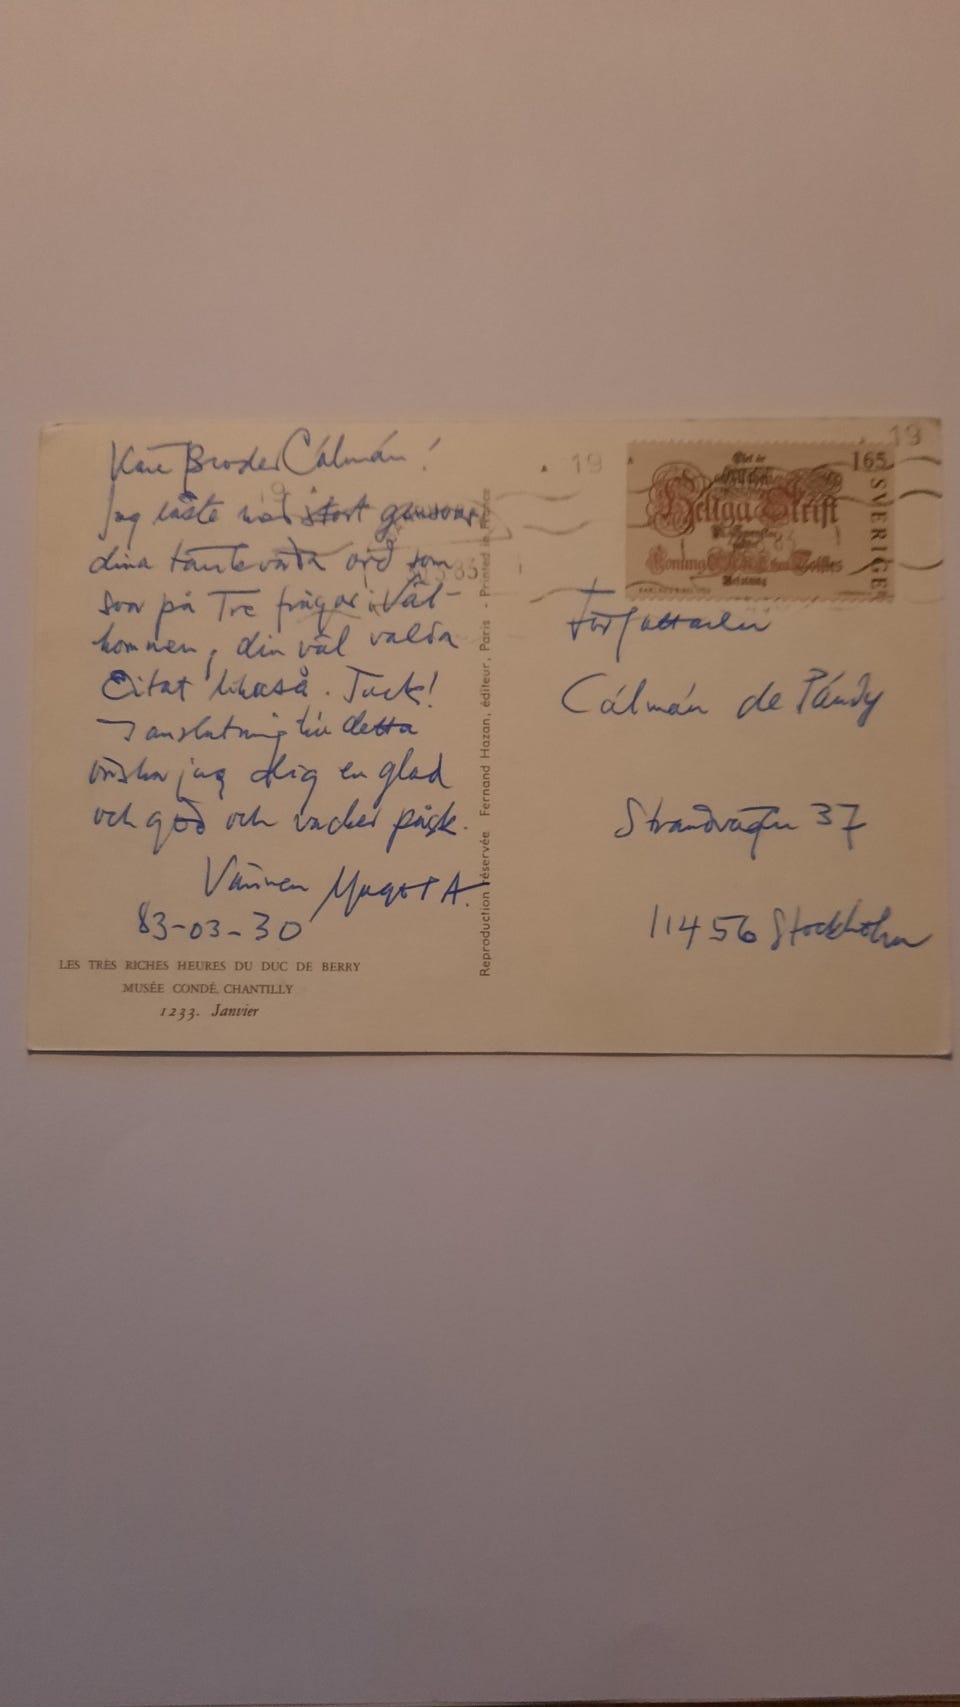 Käre Broder Cálmán!
Jag läste med stort gensvar
dina tänkvärda ord som
svar på Tre frågor i Väl-
kommen, din väl valda
Citat likaså. Tack!
I anslutning till detta
önskar jag dig en glad
och god och vacker påsk.
Vännen A.
83-03-30
LES TRÈS RICHES HEURES DU DUC DE BERRY
MUSÉE CONDÉ, CHANTILLY
1233. Janvier
Reproduction réservée Fernand Hazan, éditeur, Paris - Printed in France
19
19
165
SVERIGE
Thet är
Helga Skrift
Författaren
Cálmán de Pándy
Strandvägen 37
11456 Stockholm